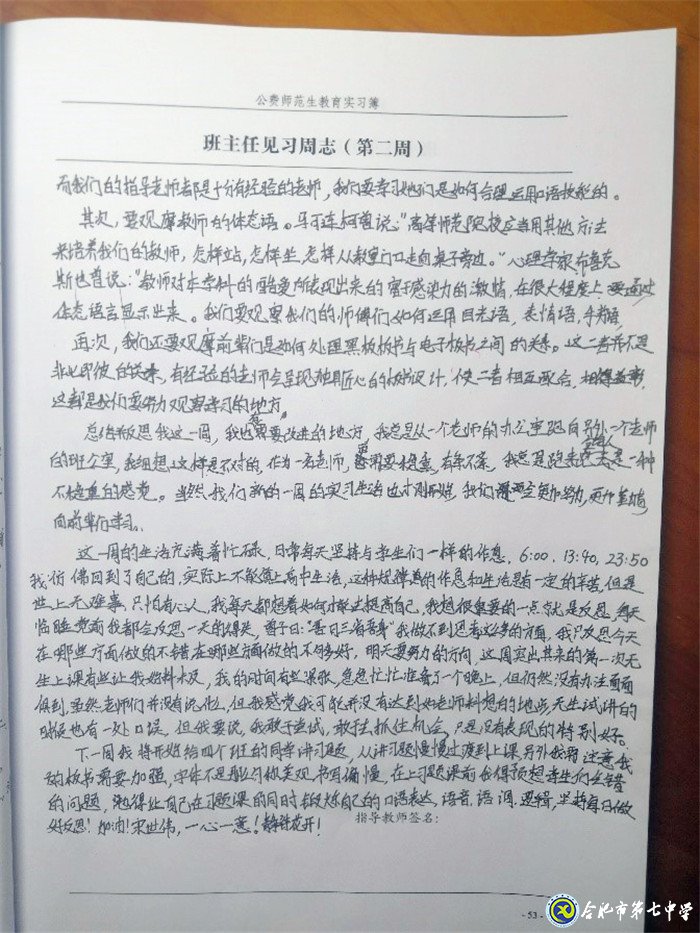 公费师范生教育实习簿
班主任见习周志（第二周）
而我们的指导老师都是十分有经验的老师，我们要学习她们是如何合理运用口语技能的。
其次，要观摩教师的体态语。马可连柯曾说："高等师范院校应当用其他方法
来培养我们的教师，怎样站，怎样坐，怎样从教室门口走向桌子旁边。"心理学家布鲁克
斯也曾说："教师对本学科的酷爱所表现出来的富于感染力的激情，在很大程度上要通过
体态语言显示出来。我们要观察我们的师傅们如何运用目光语，表情语，手势语
再次，我们还要观摩前辈们是如何处理黑板板书与电子板书之间的关系。这二者并不是
非此即彼的关系，有经验的老师会呈现独具匠心的板书设计，使二者相互融合，相得益彰，
这都是我们要努力观察学习的地方。
总结反思我这一周，我也有需要改进的地方，我总是从一个老师的办公室跑向另外一个老师
的办公室，我细想这样是不对的，作为一名老师，更需要稳重，有条不紊，我总是跑来跑去给人一种
不稳重的感觉。当然，我们新的一周的实习生活也才刚开始，我们要更加努力，更加
向前辈们学习。
这一周的生活充满着忙碌，日常每天坚持与学生们一样的作息，6:00，13:40，23:50
我仿佛回到了自己的，实际上不能算上高中生活，这种规律的作息和生活是有一定的辛苦，但是
世上无难事，只怕有心人，我每天都想着如何才能去提高自己，我想很重要的一点就是反思，每天
临睡觉前我都会反思一天的得失，曾子曰："吾日三省吾身"我做不到思考这么多的方面，我只反思今天
在哪些方面做的不错在哪些方面做的不够好，明天要努力的方向，这周突如其来的第一次无
生上课有些让我始料未及，我的时间有些紧张，急急忙忙准备了一个晚上，但仍然没有办法面面
俱到，虽然老师们并没有说什么，但我感觉我可能并没有达到她老师料想的地步，无生试讲的
时候也有一处口误，但我要说，我敢于尝试，敢于去抓住机会，只是没有表现的特别好。
下一周我将开始给四个班的同学讲习题，从讲习题慢慢过渡到上课，另外我需注意我
的板书需要加强，字体不是那么的美观，书写偏慢，在上习题课前我得预想学生们会错
的问题，也得让自己在习题课的同时锻炼自己的口语表达，语音，语调，逻辑，坚持每日做
好反思！加油！宋世伟，一心一意！静待花开！
指导教师签名：
- 53 -
合肥市第七中学